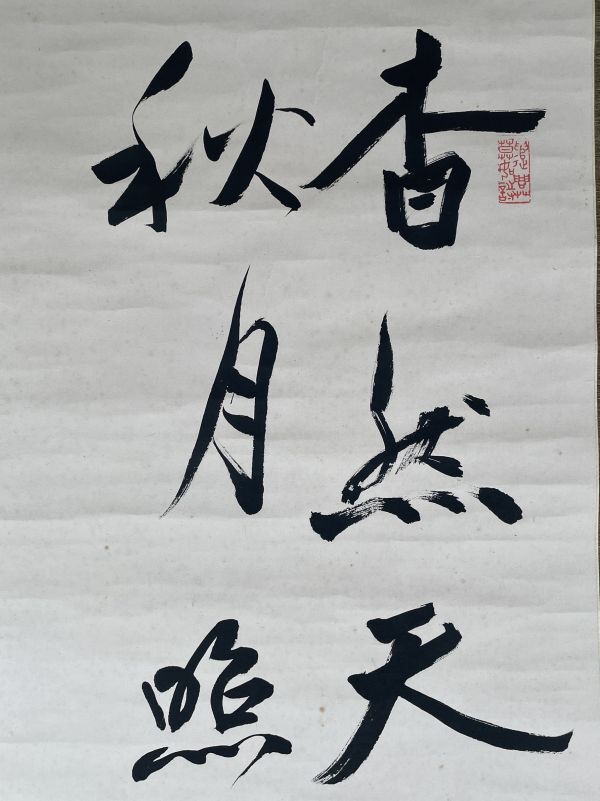 杳然天
秋月照